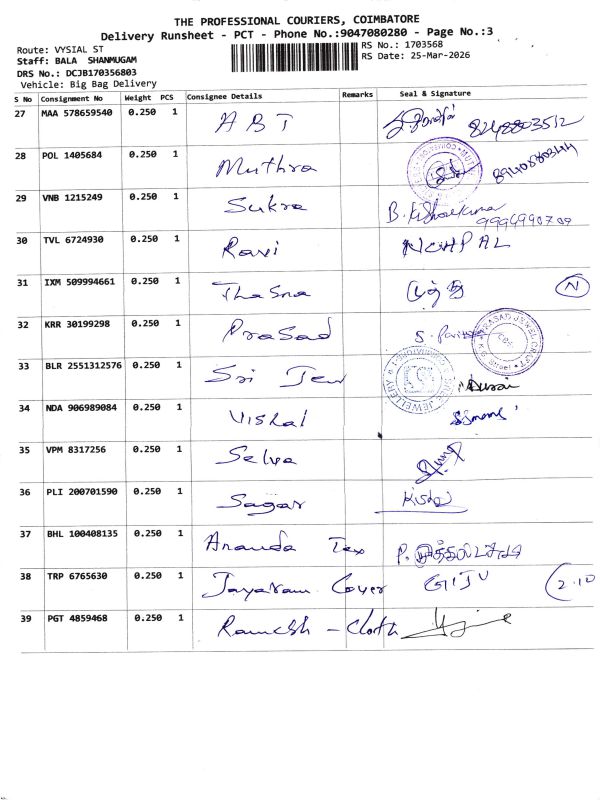 THE PROFESSIONAL COURIERS, COIMBATORE
Delivery Runsheet - PCT - Phone No.:9047080280 - Page No.:3
Route: VYSIAL ST RS No.: 1703568
Staff: BALA SHANMUGAM RS Date: 25-Mar-2026
DRS No.: DCJB170356803
Vehicle: Big Bag Delivery
S No Consignment No Weight PCS Consignee Details Remarks Seal & Signature
27 MAA 578659540 0.250 1 ABT 8248803512
28 POL 1405684 0.250 1 Muthra
29 VNB 1215249 0.250 1 Sukra B. Kishorekumar
30 TVL 6724930 0.250 1 Ravi NEHPAL
31 IXM 509994661 0.250 1 Thasna N
32 KRR 30199298 0.250 1 Prasad
33 BLR 2551312576 0.250 1 Sri Jew Durai
34 NDA 906989084 0.250 1 Vishal
35 VPM 8317256 0.250 1 Selva
36 PLI 200701590 0.250 1 Sagar
37 BHL 100408135 0.250 1 Ananda Tex
38 TRP 6765630 0.250 1 Jayaram Cover GIJU 2.10
39 PGT 4859468 0.250 1 Ramesh - Cloth